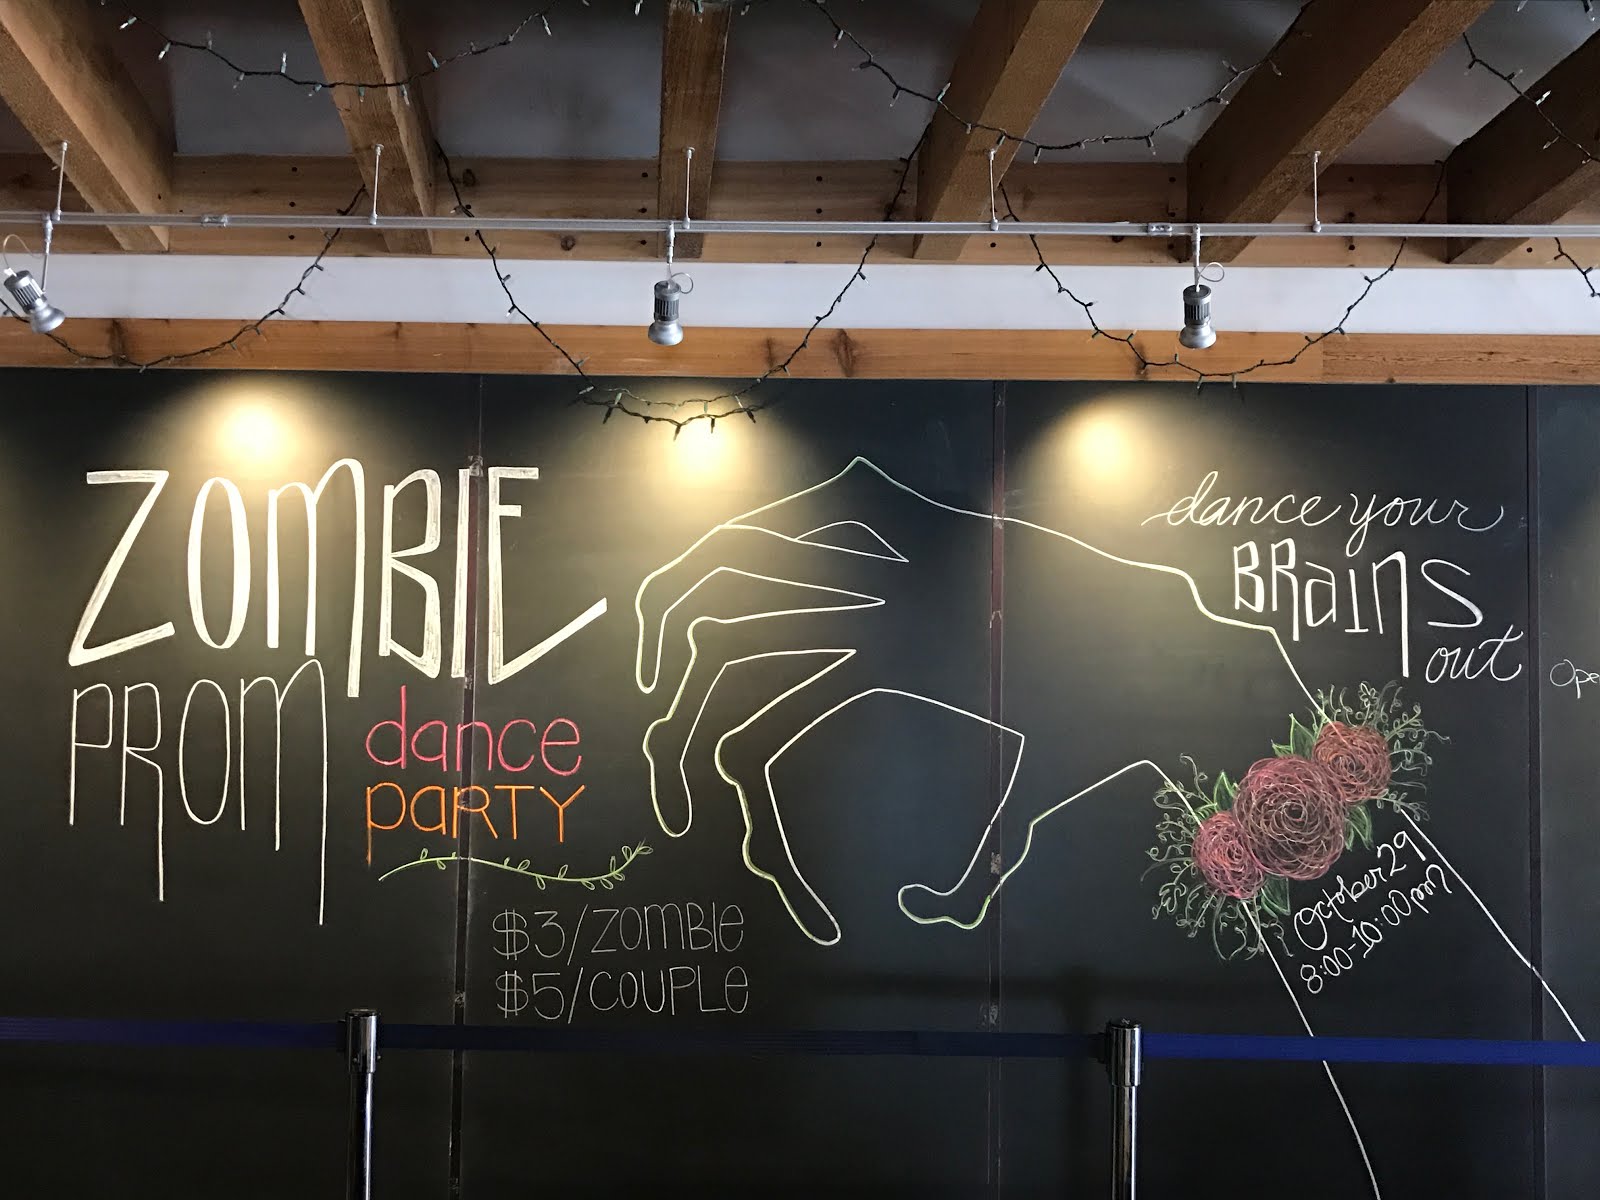 ZOMBIE
PROM
dance
party
$3/ZOMBIE
$5/COUPLE
dance your
BRaINS
out
October 29
8:00-10:00pm